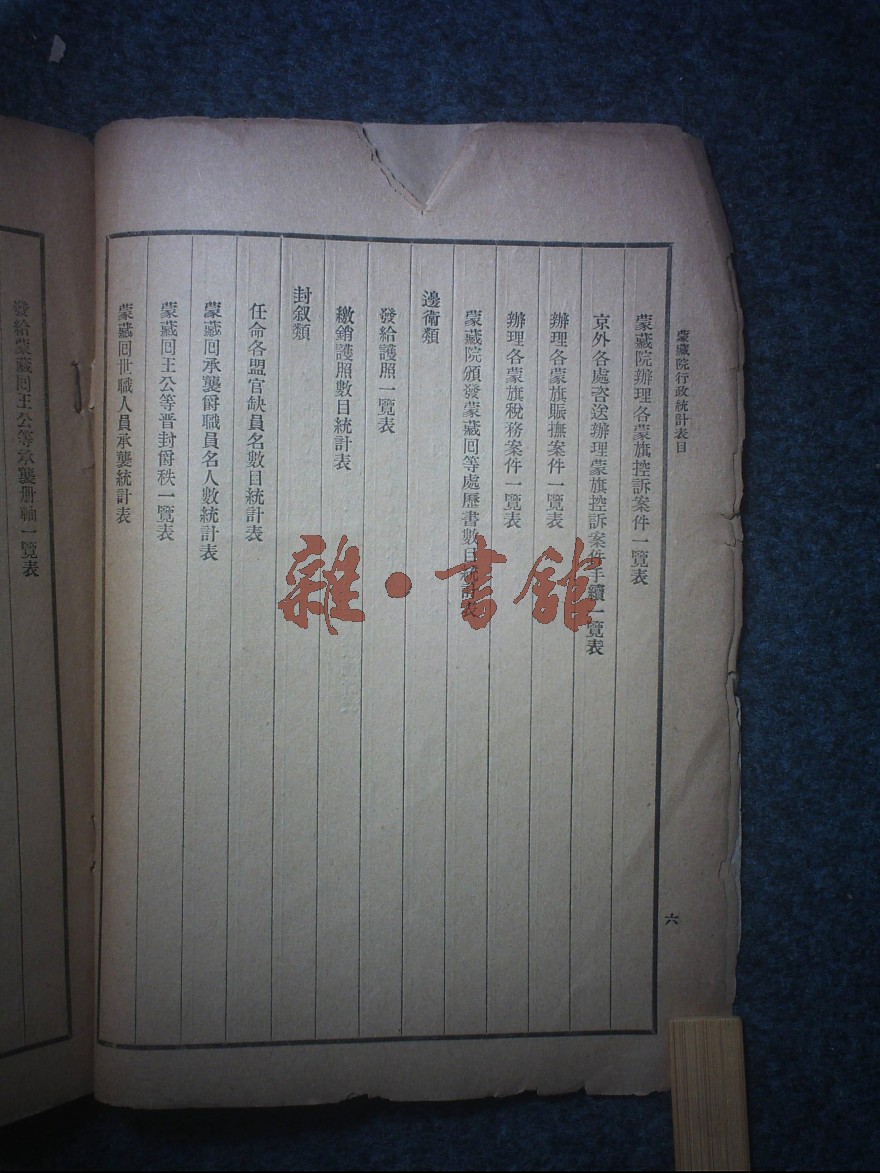 蒙藏院行政統計表目
六
蒙藏院辦理各蒙旗控訴案件一覽表
京外各處咨送辦理蒙旗控訴案件手續一覽表
辦理各蒙旗賑撫案件一覽表
辦理各蒙旗稅務案件一覽表
蒙藏院頒發蒙藏回等處歷書數目統計表
邊衛類
發給護照一覽表
繳銷護照數目統計表
封叙類
任命各盟官缺員名數目統計表
蒙藏回承襲爵職員名人數統計表
蒙藏回王公等晋封爵秩一覽表
蒙藏回世職人員承襲統計表
發給蒙藏回王公等承襲册軸一覽表
雜·書館